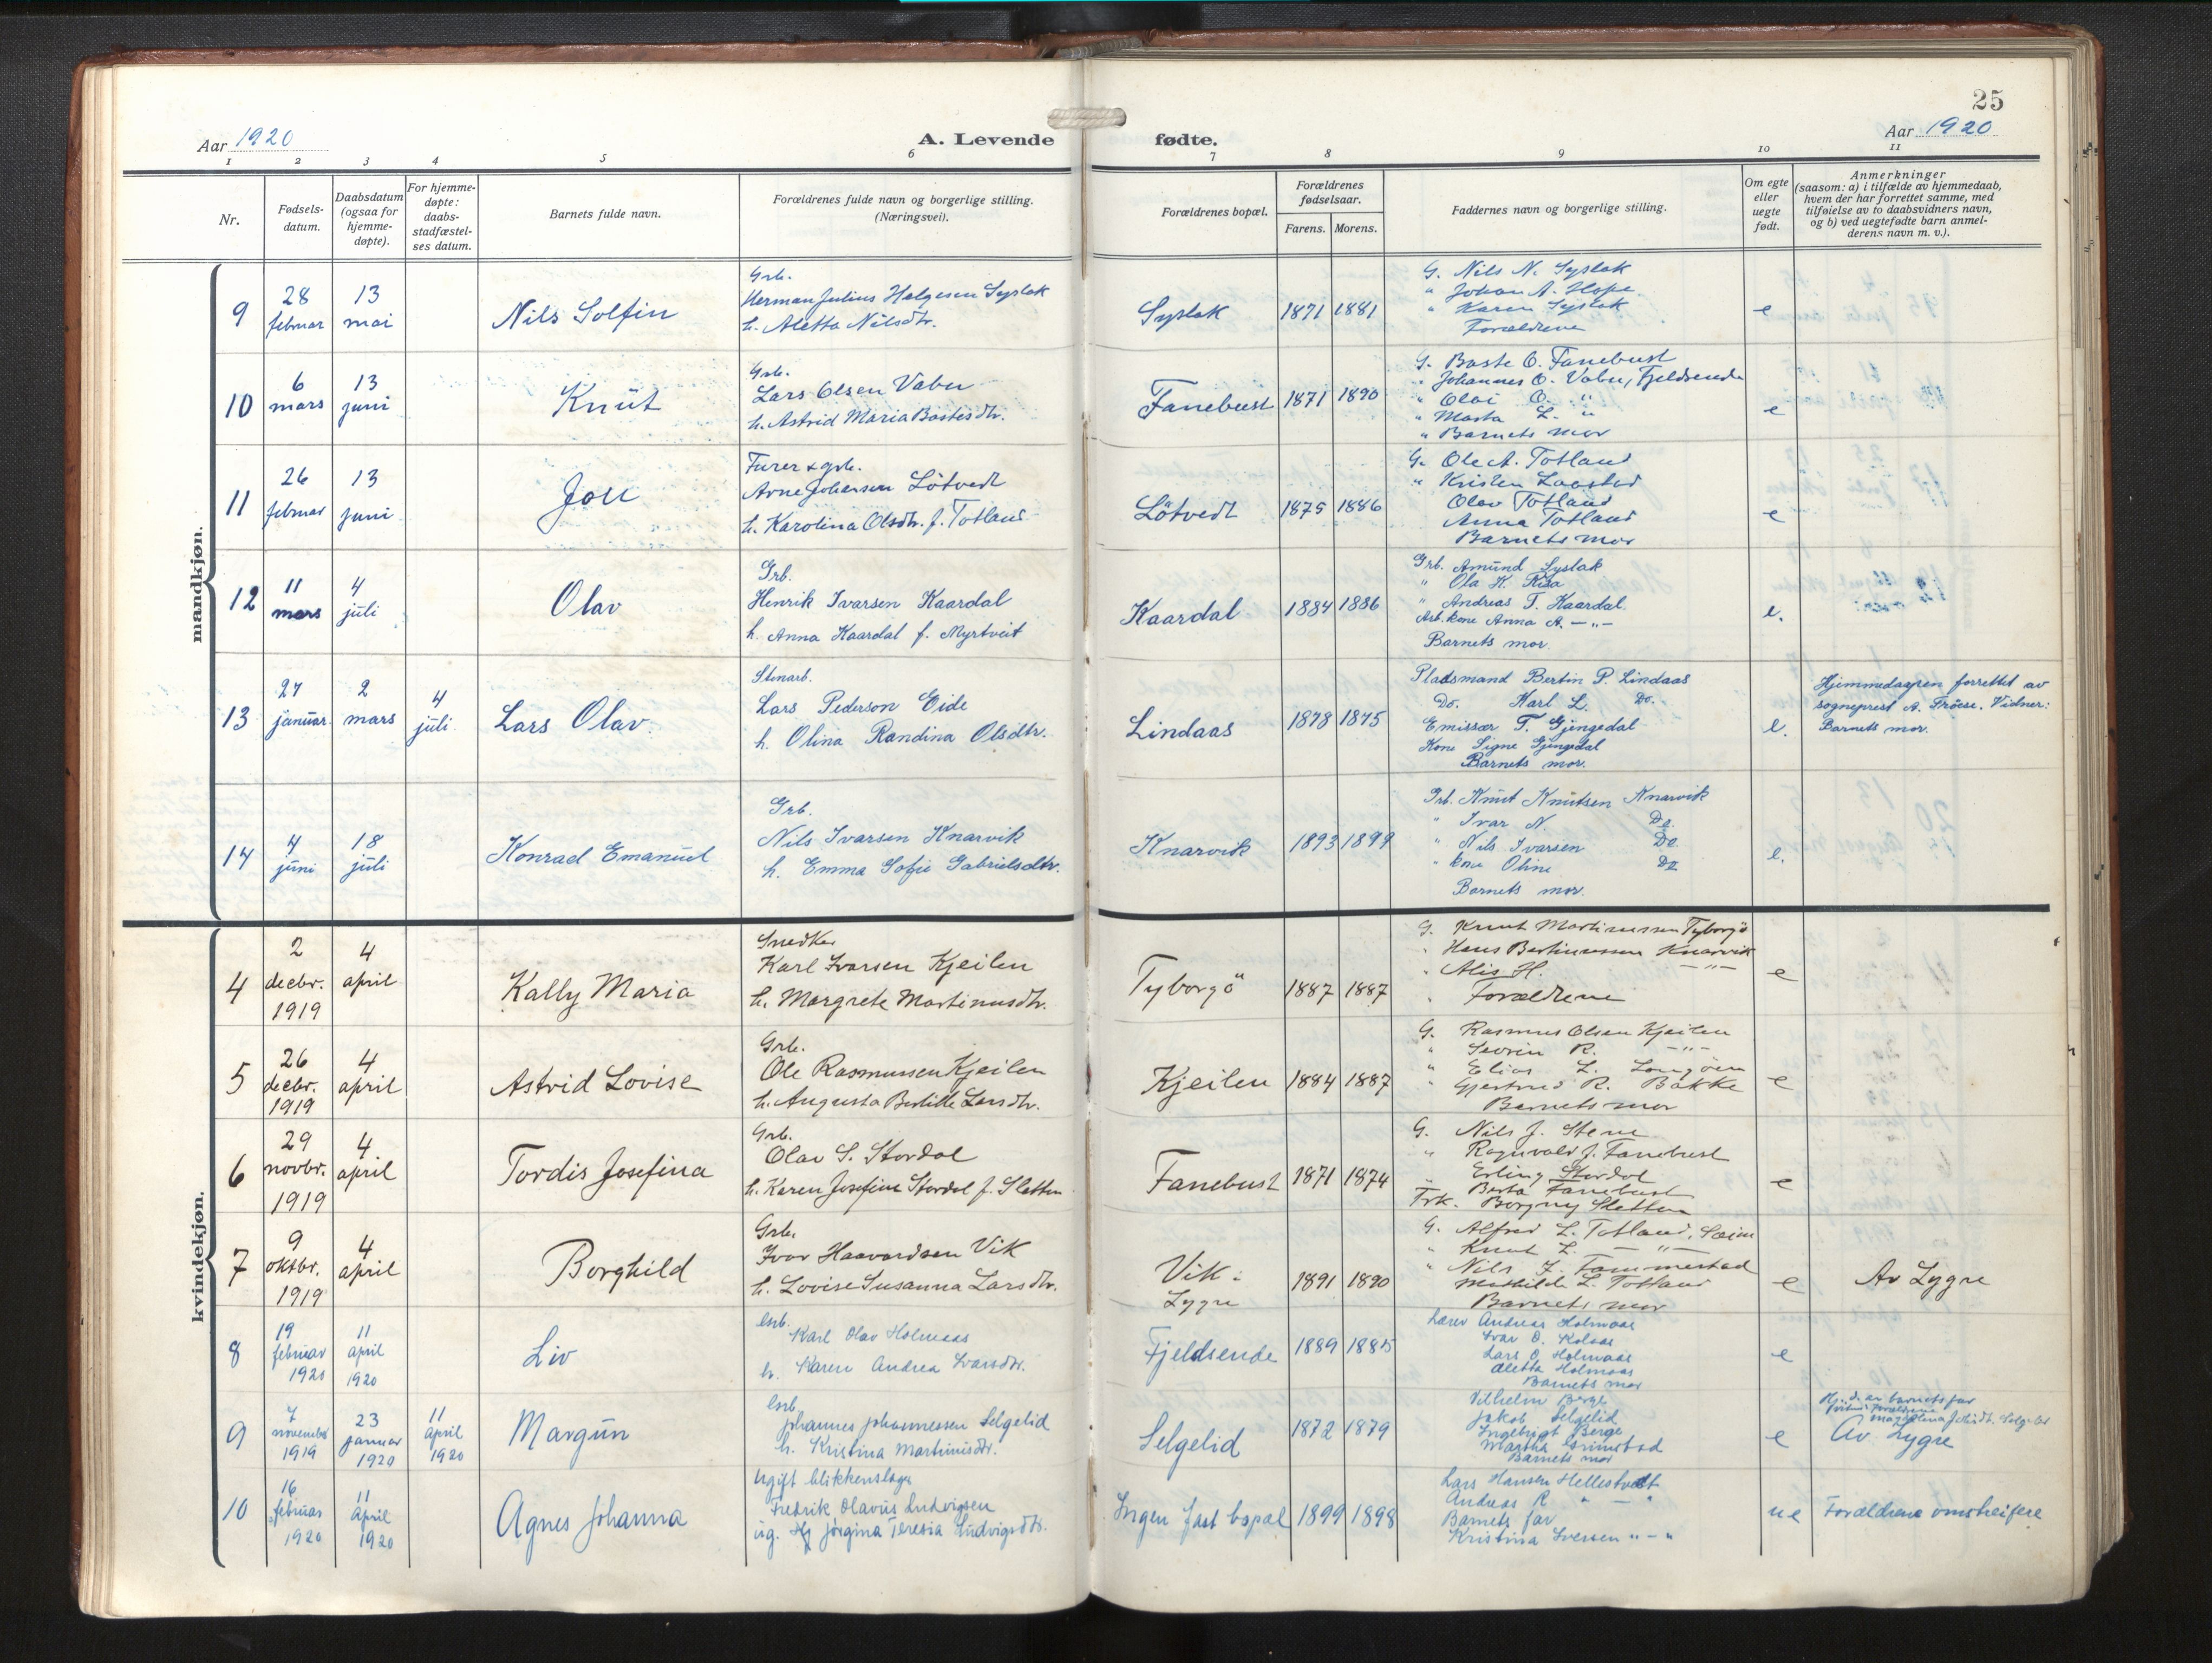 25
Aar 1920
A. Levende fødte.
Aar 1920
1 2 3 4 5 6 7 8 9 10 11
Nr.
Fødsels-
datum.
Daabsdatum
(ogsaa for
hjemme-
døpte).
For hjemme-
døpte:
daabs-
stadfæstel-
ses datum.
Barnets fulde navn.
Forældrenes fulde navn og borgerlige stilling.
(Næringsvei).
Forældrenes bopæl.
Forældrenes
fødselsaar.
Farens. Morens.
Faddernes navn og borgerlige stilling.
Om egte
eller
uegte
født.
Anmerkninger
(saasom: a) i tilfælde av hjemmedaab,
hvem der har forrettet samme, med
tilføielse av to daabsvidners navn,
og b) ved uegtefødte barn anmel-
derens navn m. v.).
mandkjøn.
9
28
februar
13
mai
Nils Solfin
Grb.
Herman Julius Helgesen Syslak
h. Aletta Nilsdtr.
Syslak
1871 1881
G. Nils N. Syslak
" Johan A. Hope
" Karen Syslak
Forældrene
e
10
6
mars
13
juni
Knut
Grb.
Lars Olsen Vabu
h. Astrid Maria Bastesdtr.
Fanebust
1871 1890
G. Baste O. Fanebust
" Johannes O. Vabu, Fjeldsende
" Olai O. "
" Marta L. "
" Barnets mor
e
11
26
februar
13
juni
Jon
Furer & grb.
Arne Johansen Lötvedt
h. Karolina Olsdtr. f. Totland
Lötvedt
1875 1886
G. Ole A. Totland
" Kristen
Olav Totland
Anna Totland
Barnets mor
e
12
11
mars
4
juli
Olav
Grb.
Henrik Ivarsen Kaardal
h. Anna Kaardal f. Myrtveit
Kaardal
1884 1886
Grb. Amund Syslak
" Ola K. Risa
" Andreas T. Kaardal
Arb. kone Anna A. — " —
Barnets mor
e.
13
27
januar
2
mars
4
juli
Lars Olav.
Stenarb.
Lars Pederson Eide
h. Olina Randina Olsdtr.
Lindaas
1878 1875
Pladsmand Bertin P. Lindaas
Do. Karl L. Do.
Emissær T. Gjengedal
Kone Signe Gjengedal
Barnets mor.
e.
Hjemmedaapen forrettet av
sogneprest A. Fröese. Vidner:
Barnets mor.
14
4
juni
18
juli
Konrad Emanuel
Grb.
Nils Ivarsen Knarvik
h. Emma Sofie Gabrielsdtr.
Knarvik
1893 1899
Grb. Knut Knutsen Knarvik
" Ivar N. Do.
" Nils Ivarsen Do
" kone Oline Do
Barnets mor.
e.
kvindekjøn.
4
2
decbr.
1919
4
april
Kally Maria
Snedker
Karl Ivarsen Kjeilen
h. Margrete Martinusdtr.
Tyborgö
1887 1887
G. Knut Martinussen Tyborgö
" Hans Bertinussen Knarvik
" Alis H. — " —
" Forældrene
e
5
26
decbr.
1919
4
april
Astrid Lovise
Grb.
Ole Rasmussen Kjeilen
h. Augusta Bertille Larsdtr.
Kjeilen
1884 1887
G. Rasmus Olsen Kjeilen
" Sevrin R. — " —
" Elias L.
" Gjertrud R. Bakke
Barnets mor
e
6
29
novbr.
1919
4
april
Tordis Josefina
Grb.
Olav S. Stordal
h. Karen Josefine Stordal f. Sletten
Fanebust
1871 1874
G. Nils J. Stene
" Ragnvald J. Fanebust
" Erling Stordal
" Berta Fanebust
Frk. Borgny Sletten
e
7
9
oktbr.
1919
4
april
Borghild
Grb.
Ivar Haavardsen Vik
h. Lovise Susanna Larsdtr.
Vik:
Lygre
1891 1890
G. Alfred L. Totland, Seim
" Knut L. — " —
" Nils J. Tammerstad
Mathilde L. Totland
Barnets mor
e
Av Lygre
8
19
februar
1920
11
april
1920
Liv
Grb.
Karl Olav Holmaas
h. Karen Andrea Ivarsdtr.
Fjeldsende
1889 1885
Lærer Andreas Holmaas
Ivar O. Kolaas
Lars O. Holmaas
Aletta Holmaas
Barnets mor
e
9
7
november
1919
23
januar
1920
11
april
1920
Margun
Grb
Johannes Johannessen Selgelid
h. Kristina Martinusdtr.
Selgelid
1872 1879
Vilhelm Berge
Jakob Selgelid
Ingebrigt Berge
Martha Grimstad
Barnets mor
e
Hj. d. av barnets far
Magdalena Johsdtr. Selgelid
Av Lygre
10
16
februar
1920
11
April
1920
Agnes Johanna
Ugift blikkenslager
Fredrik Olavus Ludvigsen
ug. Jørgina Teresia Ludvigsdtr.
Ingen fast bopæl
1899 1898
Lars Hansen Hellestvedt
Andreas R " — "
Barnets far
Kristina Iversen " — "
ue
Forældrene omstreifere